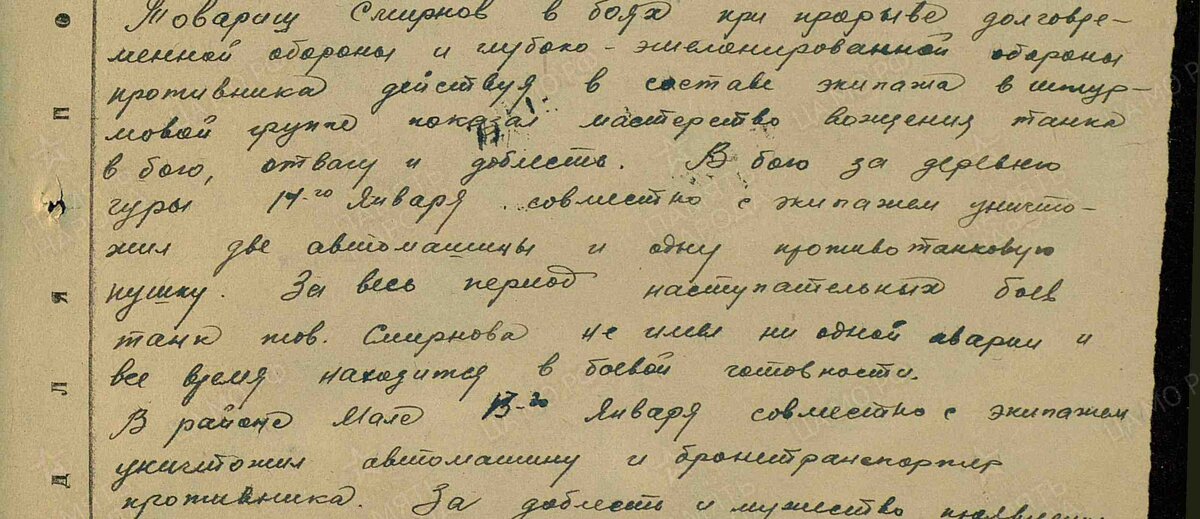 Товарищ Смирнов в боях при прорыве долговре-
менной обороны и глубоко-эшелонированной обороны
противника действуя в составе экипажа в штур-
мовой группе показал мастерство вождения танка
в бою, отвагу и доблесть. В бою за деревню
гуры 14-го Января совместно с экипажем уничто-
жил две автомашины и одну противотанковую
пушку. За весь период наступательных боев
танк тов. Смирнова не имел ни одной аварии и
все время находится в боевой готовности.
В районе Мале Января совместно с экипажем
уничтожил автомашину и бронетранспортер
противника. За доблесть и мужество